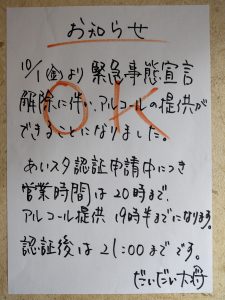 お知らせ
10/1(金)より緊急事態宣言
解除に伴い、アルコールの提供が
できることになりました。
OK
あいスタ認証申請中につき
営業時間は20時まで、
アルコール提供 19時半までになります。
認証後は21:00までです。
だいだい大将